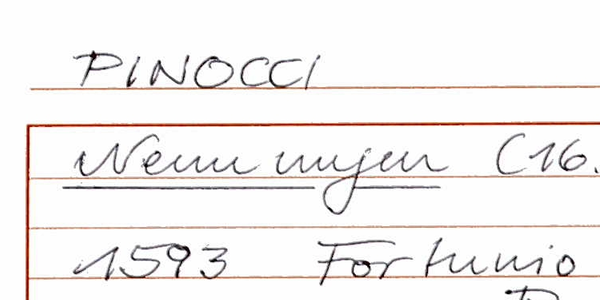 PINOCCI
Nennungen (16.
1593 Fortunio